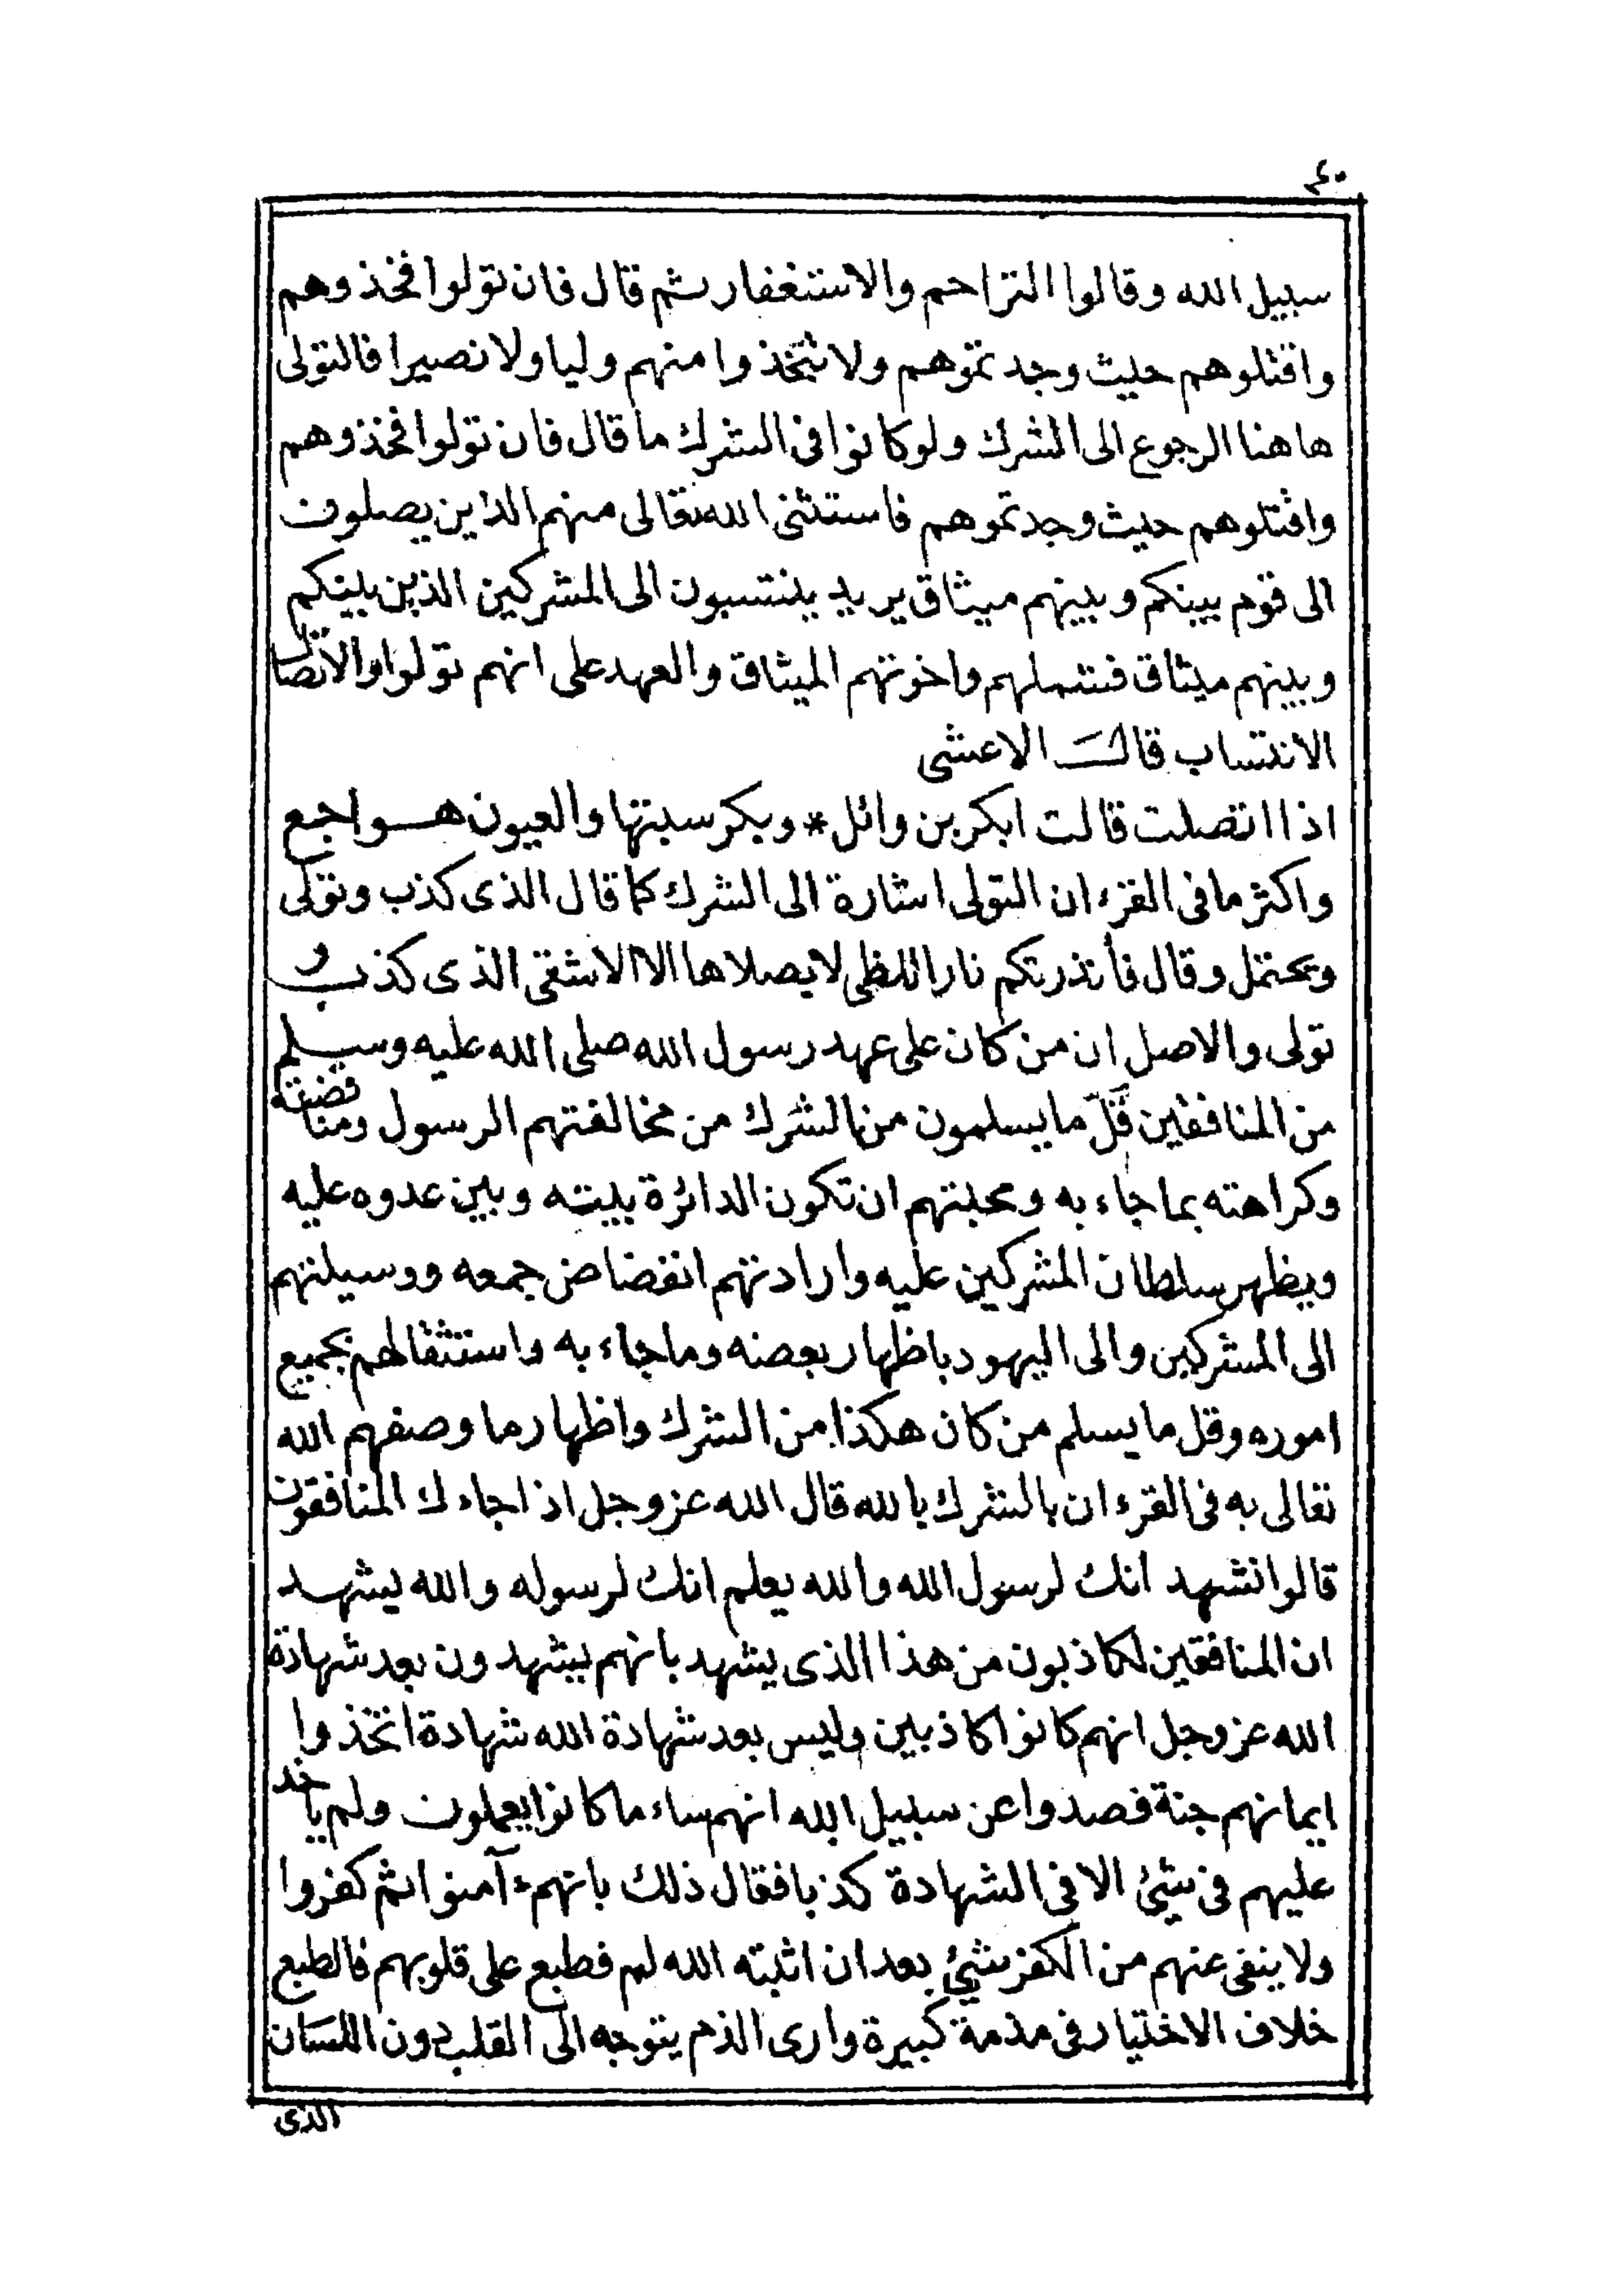 ٤٠
سبيل الله وقالوا التراحم والاستغفار ثم قال فان تولوا فخذوهم
واقتلوهم حيث وجدتموهم ولا تتخذوا منهم وليا ولا نصيرا فالتولى
هاهنا الرجوع الى الشرك ولو كانوا فى الشرك ما قال فان تولوا فخذوهم
واقتلوهم حيث وجدتموهم فاستثنى الله تعالى منهم الذين يصلون
الى قوم بينكم وبينهم ميثاق يريد ينتسبون الى المشركين الذين بينكم
وبينهم ميثاق فتشملهم واخوتهم الميثاق والعهد على انهم تولوا والاتصال
الانتساب قال الاعشى
اذا اتصلت قالت ابكر بن وائل * وبكر سبتها والعيون هواجع
واكثر ما فى القرءان التولى اشارة الى الشرك كما قال الذى كذب وتولى
ويحتمل وقال فأنذرتكم نارا تلظى لا يصلاها الا الاشقى الذى كذب و
تولى والاصل ان من كان على عهد رسول الله صلى الله عليه وسلم
من المنافقين قلّ ما يسلمون من الشرك من مخالفتهم الرسول ومناقضته
وكراهته بما جاء به ومحبتهم ان تكون الدائرة بينه وبين عدوه عليه
ويظهر سلطان المشركين عليه وارادتهم انفضاض جمعه ووسيلتهم
الى المشركين والى اليهود باظهار بعضه وما جاء به واستثقالهم بجميع
اموره وقل ما يسلم من كان هكذا من الشرك واظهار ما وصفهم الله
تعالى به فى القرءان بالشرك بالله قال الله عز وجل اذا جاءك المنافقون
قالوا نشهد انك لرسول الله والله يعلم انك لرسوله والله يشهد
ان المنافقين لكاذبون من هذا الذى يشهد بانهم يشهدون بعد شهادة
الله عز وجل انهم كانوا كاذبين وليس بعد شهادة الله شهادة اتخذوا
ايمانهم جنة فصدوا عن سبيل الله انهم ساء ما كانوا يعملون ولم ياخذ
عليهم فى شئ الا فى الشهادة كذبا فقال ذلك بانهم ءآمنوا ثم كفروا
ولا ينفى عنهم من الكفر شئ بعد ان اثبته الله لهم فطبع على قلوبهم فالطبع
خلاف الاختيار فى مذمة كبيرة وارى الذم يتوجه الى القلب دون اللسان
الذى